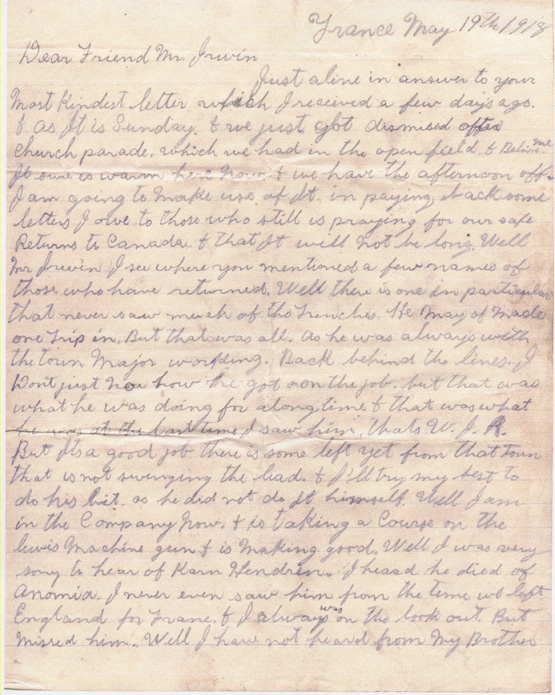 France May 19th/1918
Dear Friend Mr. Irwin
Just a line in answer to your
Most Kindest letter which I received a few days ago.
& as It is Sunday. & we just got dismised after
church parade. which we had in the open field. & Belive me
it sure is warm here Now. & we have the afternoon off.
I am going to Make use of It. in paying back some
letters I owe to those who still is praying for our safe
Returns to Canada. & that It will not be long. Well
Mr Irwin I see where you mentioned a few names of
those who have returned. Well there is one in particular
that never saw much of the Trenches. He May of Made
one Trip in. But that was all. as he was always with
the town Major working. Back behind the lines. I
Dont just Now how he got on the job. but that was
what he was doing for along time & that was what
he was at the last time I saw him, thats W. J. R.
But Its a good job there is some left yet from that town
that is not swinging the lead. & I'll try my best to
do his bit. as he did not do It himself. Well I am
in the Company Now. & is taking a Course on the
lewis Machine gun & is Making good. Well I was very
sorry to hear of Karn Hendrin. I heard he died of
Anomia. I never even saw him from the time we left
England for Franc. & I always was on the look out. But
Missed him. Well I have not heard from My Brother